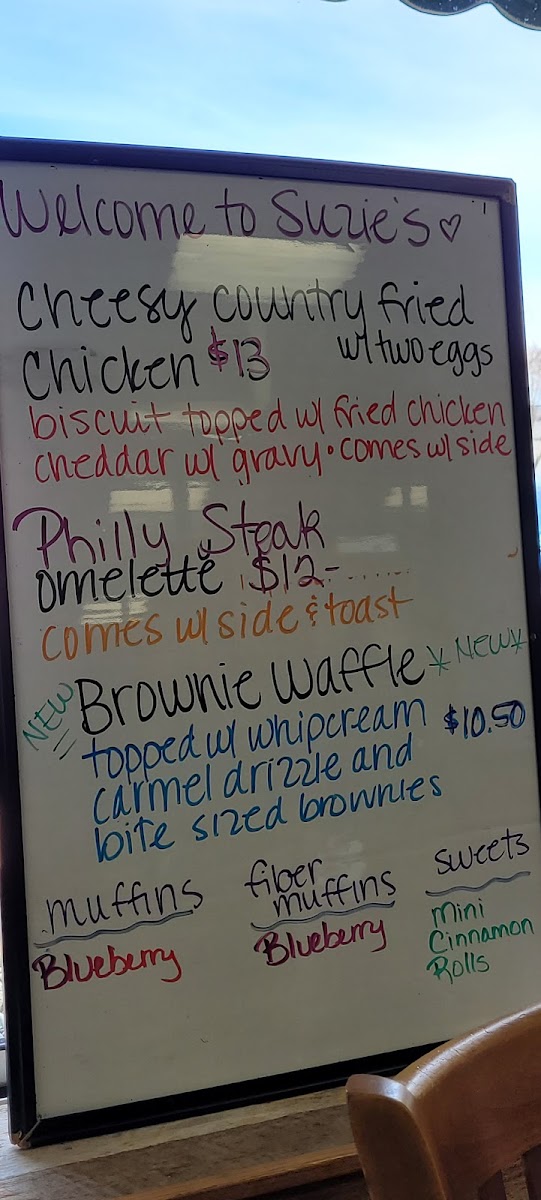 Welcome to Suzie's ♡
Cheesy country fried
Chicken $13 w/ two eggs
biscuit topped w/ fried chicken
cheddar w/ gravy • comes w/ side
Philly Steak
omelette $12-
comes w/ side & toast
NEW Brownie Waffle *NEW*
topped w/ whipcream $10.50
carmel drizzle and
bite sized brownies
muffins
Blueberry
fiber
muffins
Blueberry
sweets
Mini
Cinnamon
Rolls